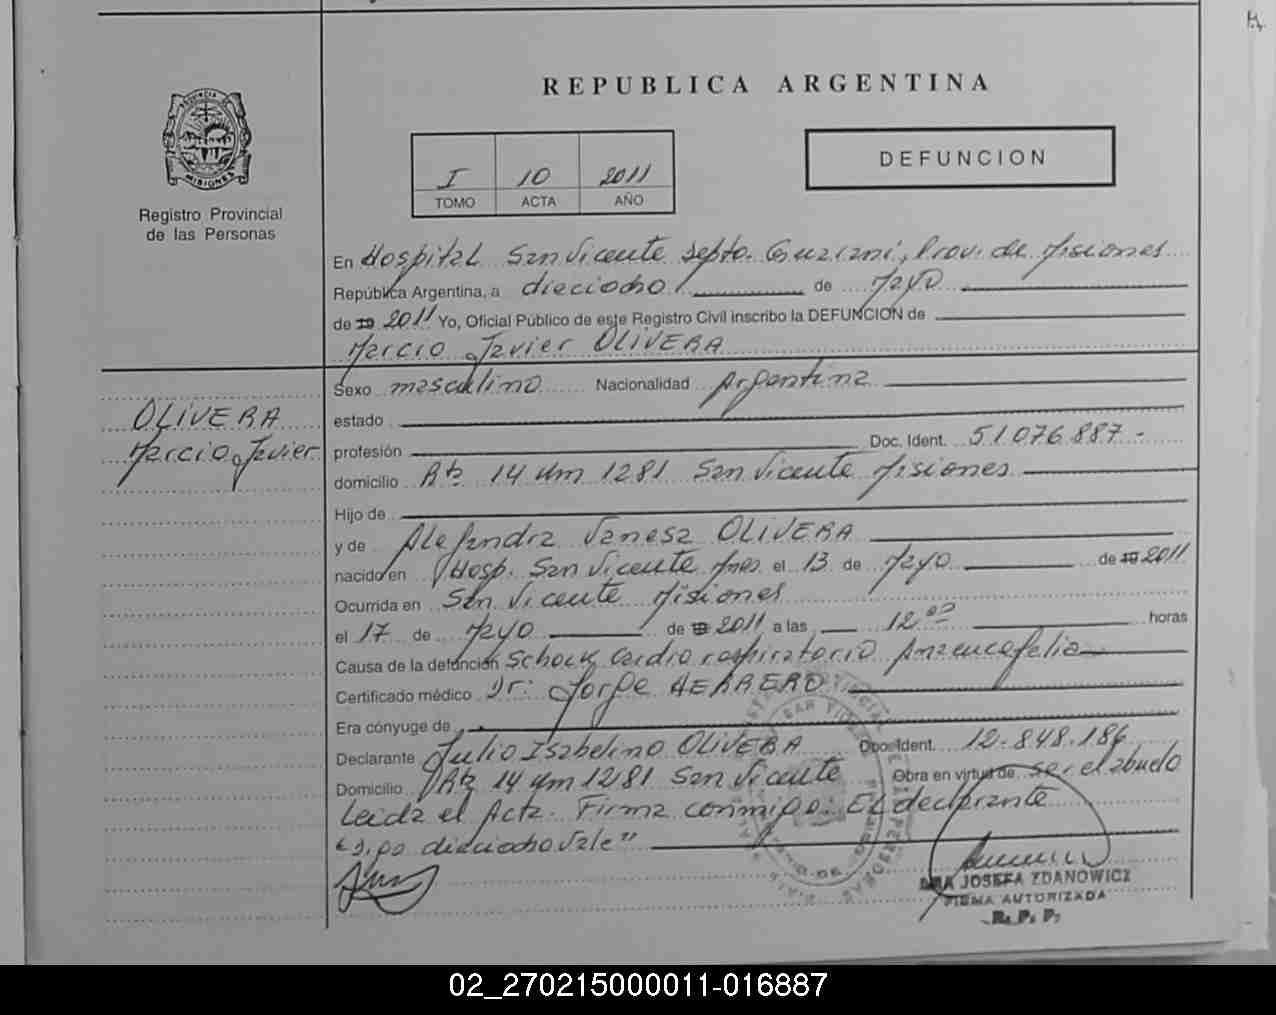 REPUBLICA ARGENTINA
PROVINCIA DE
MISIONES
Registro Provincial
de las Personas
I 10 2011
TOMO ACTA AÑO
DEFUNCION
En Hospital San Vicente Depto. Guarani, Prov. de Misiones
República Argentina, a dieciocho de Mayo
de 19 2011 Yo, Oficial Público de este Registro Civil inscribo la DEFUNCION de
Marcio Javier OLIVERA
OLIVERA
Marcio Javier
Sexo masculino Nacionalidad Argentina
estado
profesión Doc. Ident. 51.076.887-
domicilio Rta 14 Km 1281 San Vicente Misiones
Hijo de
y de Alejandra Vanesa OLIVERA
nacido en Hosp. San Vicente Mnes el 13 de Mayo de 19 2011
Ocurrida en San Vicente Misiones
el 17 de Mayo de 19 2011 a las 12 00 horas
Causa de la defunción Schock Cardio respiratorio Anencefelia
Certificado médico Dr: Jorge HERRERO
Era cónyuge de
Declarante Julio Isabelino OLIVERA Doc. Ident. 12.848.186
Domicilio Rta 14 Km 1281 San Vicente Obra en virtud de ser el abuelo
Leida el Acta. Firma conmigo. El declarante
"Digo dieciocho Vale"
JOSEFA ZDANOWICZ
FIRMA AUTORIZADA
R. P. P.
02_270215000011-016887